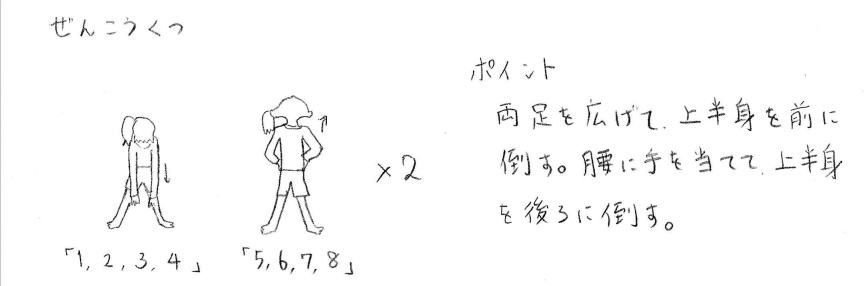 ぜんこうくつ
ポイント
両足を広げて、上半身を前に
倒す。腰に手を当てて、上半身
を後ろに倒す。
×2
「1, 2, 3, 4」 「5, 6, 7, 8」